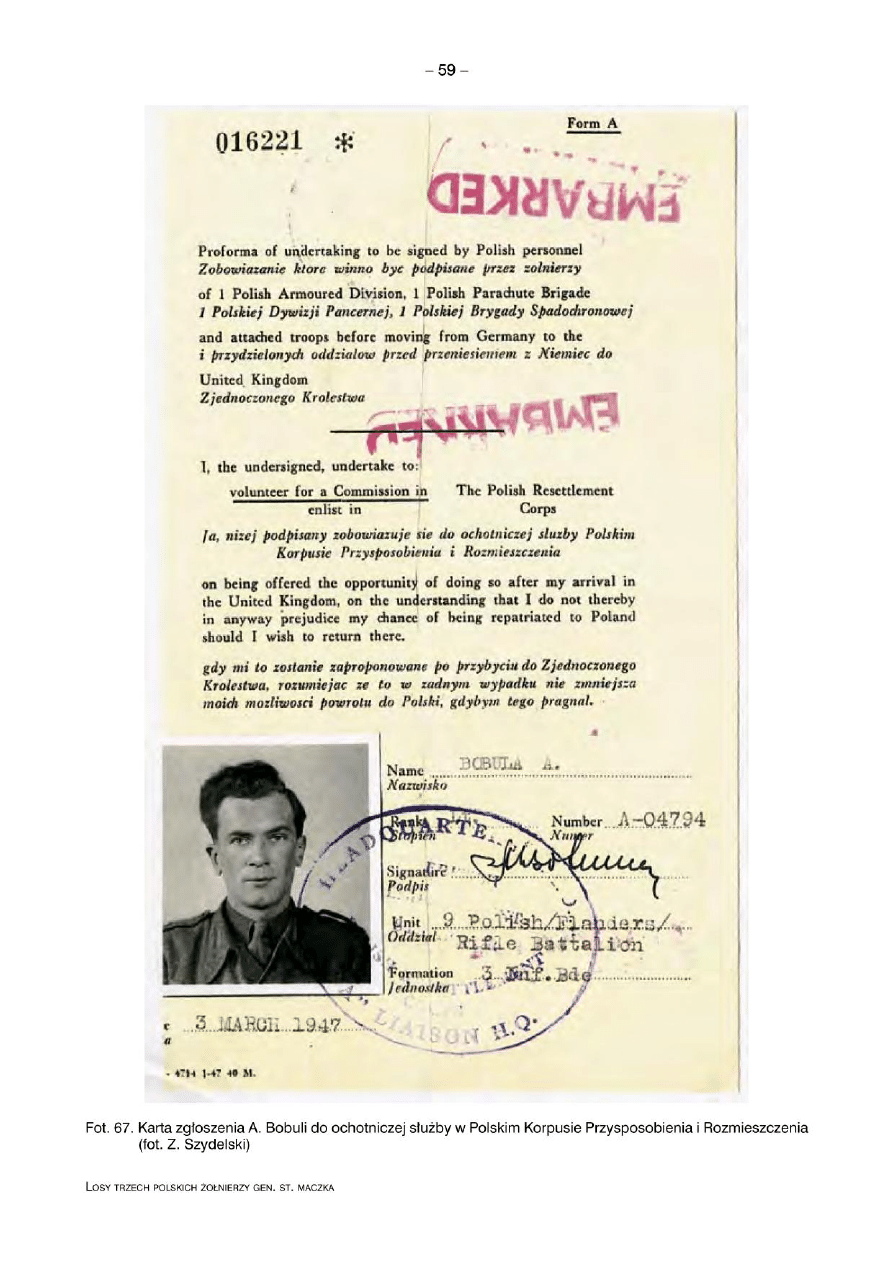 – 59 –
Form A
016221 *
EMBARKED
Proforma of undertaking to be signed by Polish personnel
Zobowiazanie ktore winno byc podpisane przez zolnierzy
of 1 Polish Armoured Division, 1 Polish Parachute Brigade
1 Polskiej Dywizji Pancernej, 1 Polskiej Brygady Spadochronowej
and attached troops before moving from Germany to the
i przydzielonych oddzialow przed przeniesieniem z Niemiec do
United Kingdom
Zjednoczonego Krolestwa
EMBARKED
I, the undersigned, undertake to:
volunteer for a Commission in The Polish Resettlement
enlist in Corps
Ja, nizej podpisany zobowiazuje sie do ochotniczej sluzby Polskim
Korpusie Przysposobienia i Rozmieszczenia
on being offered the opportunity of doing so after my arrival in
the United Kingdom, on the understanding that I do not thereby
in anyway prejudice my chance of being repatriated to Poland
should I wish to return there.
gdy mi to zostanie zaproponowane po przybyciu do Zjednoczonego
Krolestwa, rozumiejac ze to w zadnym wypadku nie zmniejsza
moich mozliwosci powrotu do Polski, gdybym tego pragnal.
Name BOBULA A.
Nazwisko
Rank Number A-04794
Stopien Numer
Signature
Podpis
Unit 9 Polish/Flanders/
Oddzial Rifle Battalion
Formation 3 Inf. Bde
Jednostka
LIAISON H.Q.
3 MARCH 1947
4714 1-47 40 M.
Fot. 67. Karta zgłoszenia A. Bobuli do ochotniczej służby w Polskim Korpusie Przysposobienia i Rozmieszczenia
(fot. Z. Szydelski)
LOSY TRZECH POLSKICH ŻOŁNIERZY GEN. ST. MACZKA